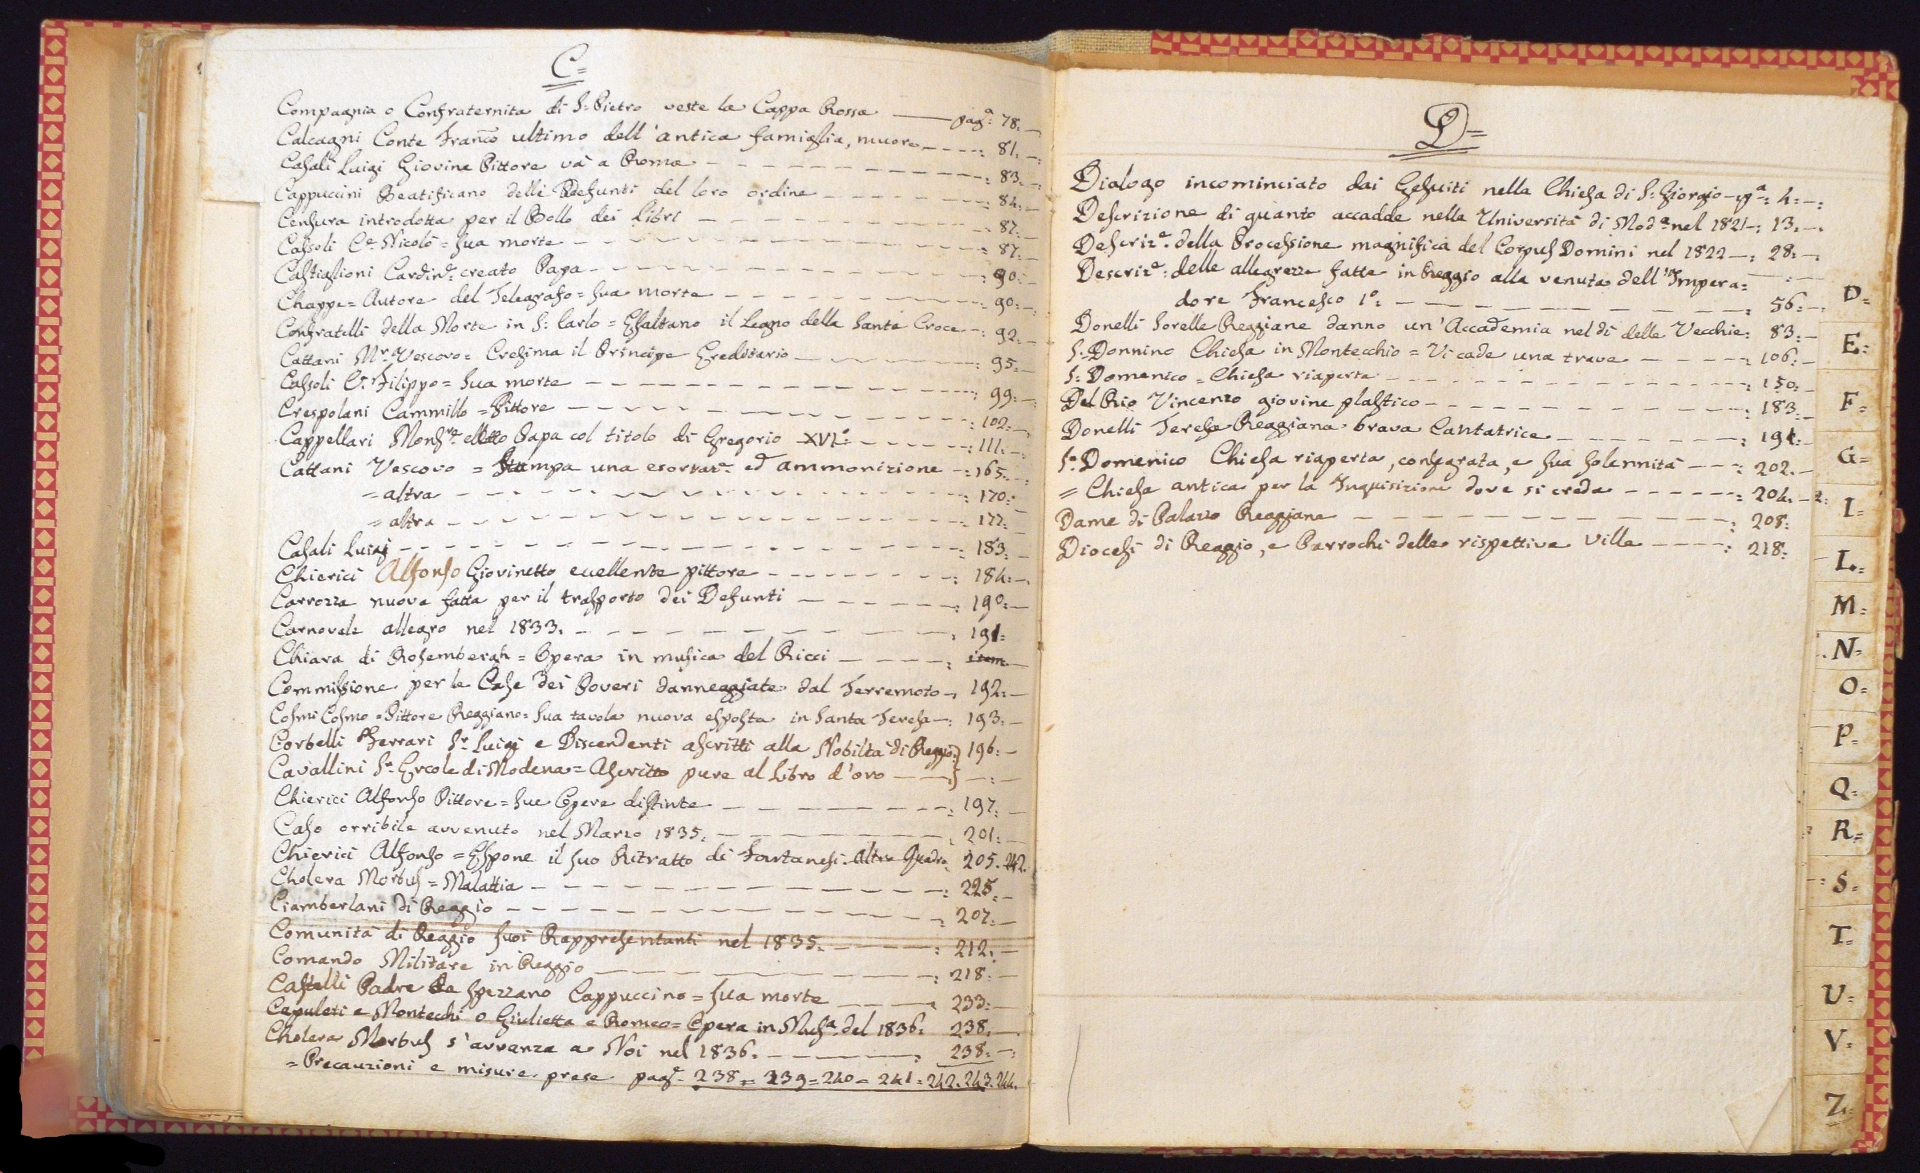 C=
Compagnia o Confraternita di S: Pietro veste la Cappa Rossa — pagª: 78:
Calcagni Conte Franco ultimo dell'antica famiglia, muore - - - : 81:
Casali Luigi Giovine Pittore và a Roma - - - : 83:
Cappuccini Beatificano delli Defunti del loro ordine - - - : 84:
Censura introdotta per il Bollo dei Libri - - - : 87:
Cassoli Ce Nicolò = sua morte - - - : 87:
Castiglioni Cardine creato Papa - - - : 90:
Chappe = Autore del Telegrafo = sua morte - - - : 90:
Confratelli della Morte in S: Carlo = Esaltano il Legno della Santa Croce - : 92:
Cattani Mr Vescovo = Cresima il Principe Ereditario - - - : 95:
Cassoli Ce Filippo = sua morte - - - : 99:
Crespolani Cammillo = Pittore - - - : 102:
Cappellari Monsre eletto Papa col titolo di Gregorio XVIº: - - - : 111:
Cattani Vescovo = Stampa una esortaze ed ammonizione - : 165:
= altra - - - : 170:
= altra - - - : 177:
Casali Luigi - - - : 183:
Chierici Alfonso Giovinetto eccellente pittore - - - : 184:
Carrozza nuova fatta per il trasporto dei Defunti - - - : 190:
Carnovale allegro nel 1833: - - - : 191:
Chiara di Rosembergh = Opera in musica del Ricci - - - : item
Commissione per le Case dei Poveri danneggiate dal Terremoto - : 192:
Cosmi Cosmo = Pittore Reggiano = sua tavola nuova esposta in Santa Teresa - : 193:
Corbelli Ferrari Sr Luigi e Discendenti ascritti alla Nobiltà di Reggio } 196:
Cavallini Sr Ercole di Modena = Ascritto pure al Libro d'oro — }
Chierici Alfonso Pittore = sue Opere distinte - - - : 197:
Caso orribile avvenuto nel Marzo 1835: - - - : 201:
Chierici Alfonso = Espone il suo Ritratto di Fontanesi. Altro Quadro 205. 242.
Cholera Morbus = Malattia - - - : 225:
Ciamberlani di Reggio - - - : 207:
Comunità di Reggio suoi Rappresentanti nel 1835: - - - : 212:
Comando Militare in Reggio - - - : 218:
Castelli Padre da Spezzano Cappuccino = sua morte - - - : 233:
Capuleti e Montecchi o Giulietta e Romeo = Opera in Musª del 1836: 238:
Cholera Morbus s'avvanza a Noi nel 1836: - - - : 238:
= Precauzioni e misure prese page 238 = 239 = 240 = 241 = 242. 243. 244.
D=
Dialogo incominciato dai Gesuiti nella Chiesa di S: Giorgio - pgª: 4:
Descrizione di quanto accadde nella Università di Modª nel 1821 - : 13:
Descrize della Processione magnifica del Corpus Domini nel 1822 - : 28:
Descrize: delle allegrezze fatte in Reggio alla venuta dell'Impera=
dore Francesco 1º: - - - : 56:
Donelli Sorelle Reggiane danno un'Accademia nel dì delle Vecchie: 83:
S: Donnino Chiesa in Montecchio = Vi cade una trave - - - : 106:
S: Domenico = Chiesa riaperta - - - : 150:
Del Rio Vincenzo giovine plastico - - - : 183:
Donelli Teresa Reggiana brava Cantatrice - - - : 194:
Sn Domenico Chiesa riaperta, consegrata, e sua solennità - - : 202:
= Chiesa antica per la Inquisizione dove si creda - - - : 204:
Dame di Palazzo Reggiane - - - : 208:
Diocesi di Reggio, e Parrochi delle rispettive Ville - - - : 218:
D=
E=
F=
G=
I=
L=
M=
N=
O=
P=
Q=
R=
S=
T=
U=
V=
Z=